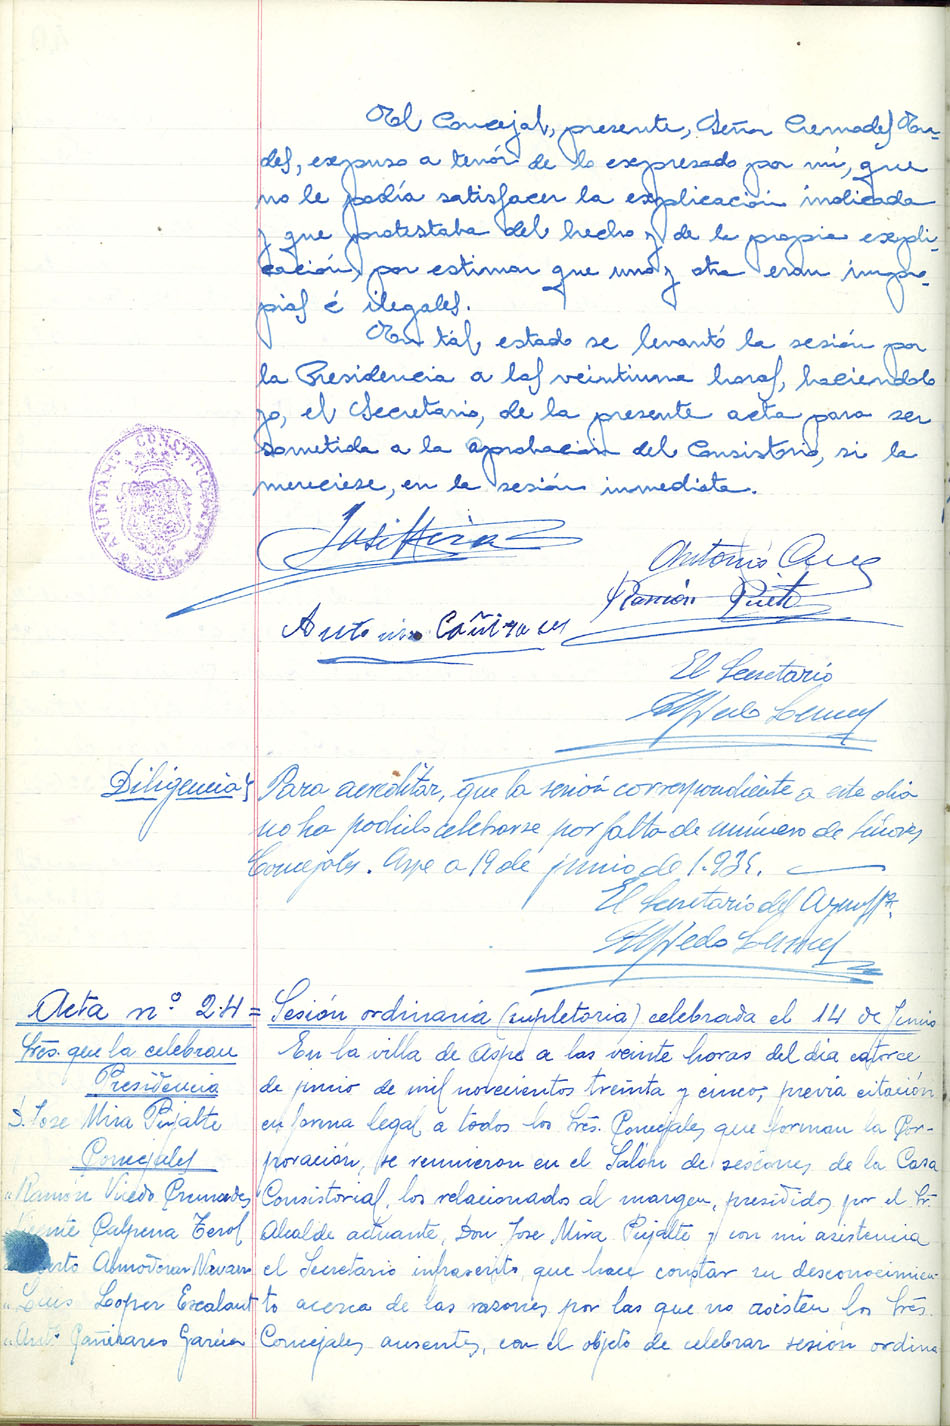 El Concejal, presente, Señor Cremades Cre-
des, expuso a tenór de lo expresado por mí, que
no le podía satisfacer la explicación indicada
y que protestaba del hecho y de la propia expli-
cación, por estimar que una y otra eran impro-
pias é ilegales.
En tál estado se levantó la sesión por
la Presidencia a las veintiuna horas, haciéndolo
yo, el Secretario, de la presente acta para ser
sometida a la aprobación del Consistorio, si la
mereciese, en la sesión inmediata.
AYUNTAMTº CONSTITUCIONAL
ASPE
José Mira
Antonio
Ramón
Antonio Cañizares
El Secretario
Alfredo
Diligencia
Para acreditar, que la sesión correspondiente a este dia
no ha podido celebrarse por falta de número de Señores
Concejales. Aspe a 19 de junio de 1.935.
El Secretario del Ayuntº.
Alfredo
Acta nº 24 = Sesión ordinaria (supletoria) celebrada el 14 de Junio
Sres. que la celebran
Presidencia
D. Jose Mira Pujalte
Concejales
" Ramón Vicedo Cremades
Calpena Terol
Almodovar Navarro
" Luis Lopez Escalant
" Antº Cañizares Garcia
En la villa de Aspe a las veinte horas del dia catorce
de junio de mil novecientos treinta y cinco, previa citación
en forma legal a todos los Sres. Concejales que forman la Cor-
poración, se reunieron en el Salón de sesiones de la Casa
Consistorial, los relacionados al margen, presididos por el Sr.
Alcalde actuante, Don Jose Mira Pujalte y con mi asistencia
el Secretario infrascrito, que hace constar su desconocimien-
to acerca de las razones por las que no asisten los Sres.
Concejales ausentes, con el objeto de celebrar sesión ordina